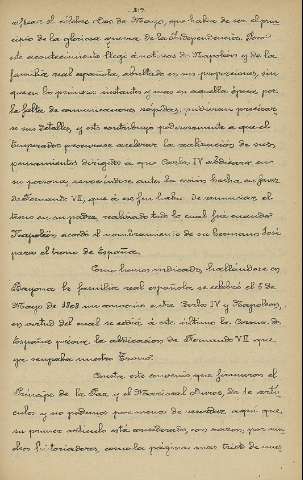 217.
el célebre dos de Mayo, que había de ser el prin
cipio de la gloriosa guerra de la Independencia. Pron
to acontecimiento llegó á noticia de Napoleón y de la
familia real española, abultado en sus proporciones, sin
que en los primeros instantes y mas en aquella época, por
la falta de comunicaciones rápidas, pudieran precisar
se sus detalles, y esto contribuyó poderosamente a que el
Emperador procurase acelerar la realización de sus
pensamientos dirigidos a que Carlos IV abdicara en
su persona, renovándose antes la cesión hecha en favor
de Fernando VII, que á su fin hubo de renunciar el
trono en su padre, realizado todo lo cual fué cuando
Napoleón acordó el nombramiento de su hermano José
para el trono de España.
Como hemos indicado, hallándose en
Bayona la familia real española se celebró el 5 de
Mayo de 1808 un convenio entre Carlos IV y Napoleón,
en virtud del cual se cedía á este último la Corona de
España previa la abdicación de Fernando VII que
ya ocupaba nuestro Trono.
Consta este convenio que firmaron el
Príncipe de la Paz y el Mariscal Duroc, de 10 artí
culos y no podemos por menos de recordar aqui que,
su primer artículo está considerado, con razon, por mu
chos historiadores, como la página mas triste de nues